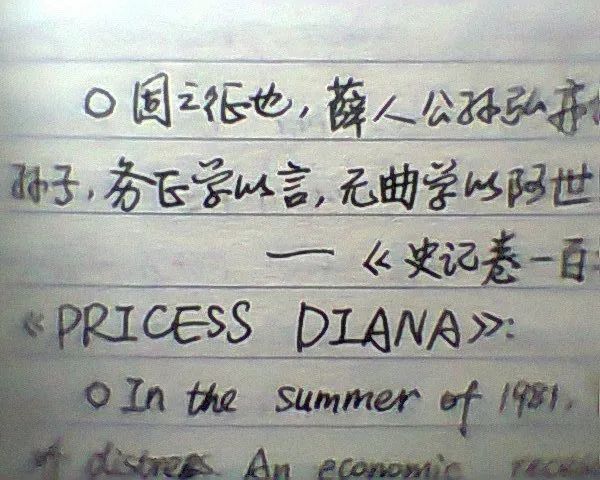 ○ 固之征也，薛人公孙弘亦
孙子，务正学以言，无曲学以阿世
—— 《史记卷一百
《PRICESS DIANA》:
○ In the summer of 1981.
of distress. An economic